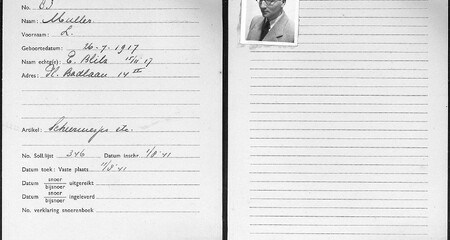 No. 83
Naam: Muller
Voornaam: L.
Geboortedatum: 26-7-1917
Naam echtg(e): E. Blits 17
Adres: Badlaan 14 II
Artikel: etc.
No. Soll.lijst 346 Datum inschr. 1/8 '41
Datum toek: Vaste plaats '41
Datum snoer uitgereikt
bijsnoer
Datum snoer ingeleverd
bijsnoer
No. verklaring snoerenboek